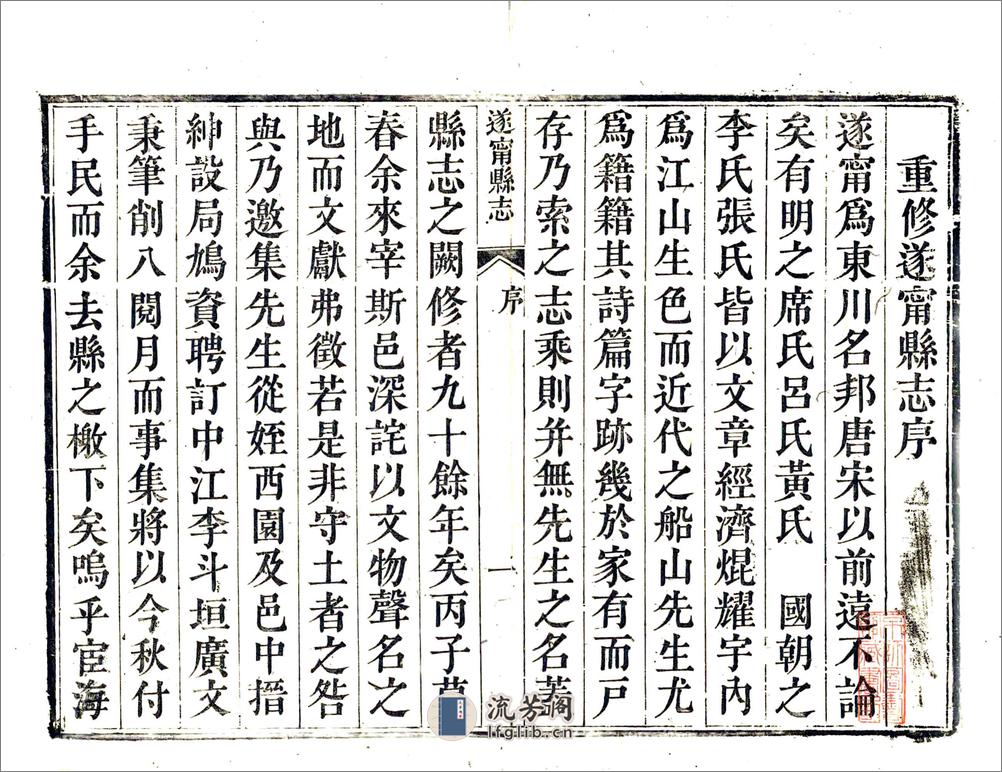 重修遂甯縣志序
遂甯爲東川名邦唐宋以前遠不論
矣有明之席氏呂氏黃氏　國朝之
李氏張氏皆以文章經濟焜耀宇內
爲江山生色而近代之船山先生尤
爲籍籍其詩篇字跡幾於家有而戶
存乃索之志乘則并無先生之名葢
遂甯縣志
序
一
縣志之闕修者九十餘年矣丙子
春余來宰斯邑深詫以文物聲名之
地而文獻弗徵若是非守土者之咎
與乃邀集先生從姪西園及邑中搢
紳設局鳩資聘訂中江李斗垣廣文
秉筆削八閱月而事集將以今秋付
手民而余去縣之檄下矣嗚乎宦海
流芳阁
lfglib.cn